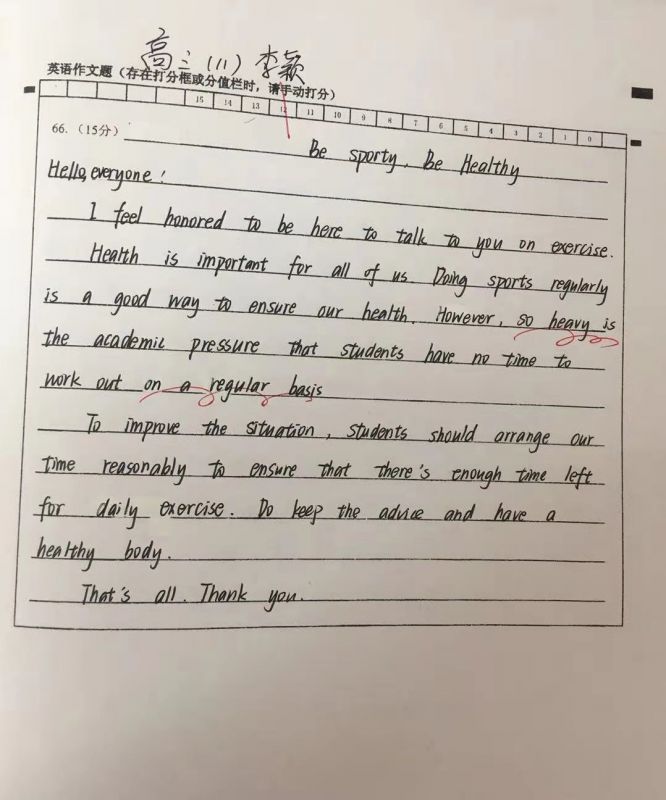 高三(11) 李颖
英语作文题（存在打分框或分值栏时，请手动打分）
15 14 13 12 11 10 9 8 7 6 5 4 3 2 1 0
66.（15分）
Be sporty, Be Healthy
Hello, everyone!
I feel honored to be here to talk to you on exercise.
Health is important for all of us. Doing sports regularly
is a good way to ensure our health. However, so heavy is
the academic pressure that students have no time to
work out on a regular basis
To improve the situation, students should arrange our
time reasonably to ensure that there's enough time left
for daily exercise. Do keep the advice and have a
healthy body.
That's all. Thank you.